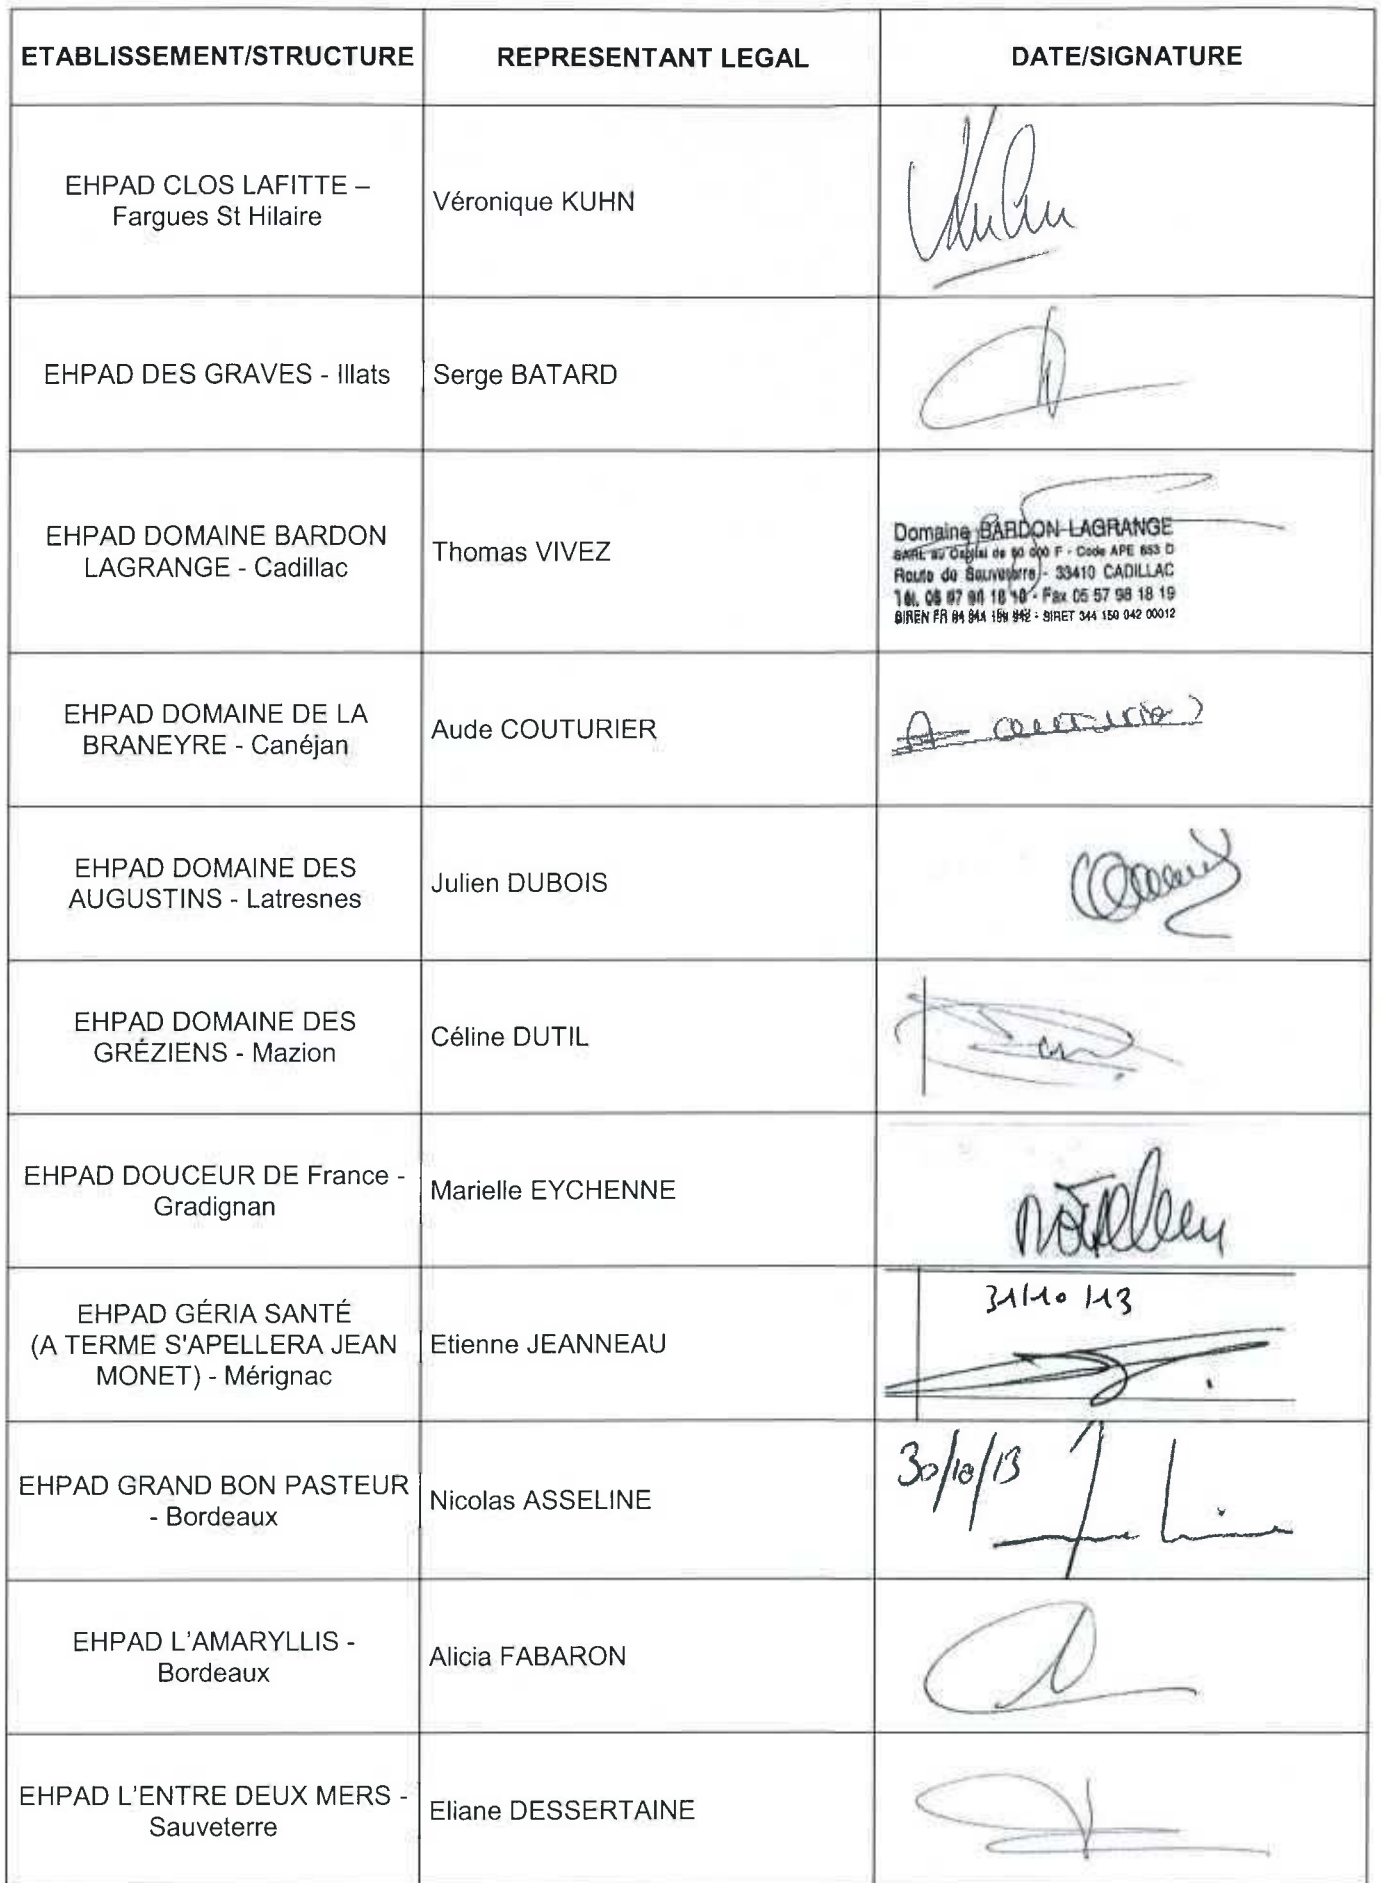 ETABLISSEMENT/STRUCTURE
REPRESENTANT LEGAL
DATE/SIGNATURE
EHPAD CLOS LAFITTE –
Fargues St Hilaire
Véronique KUHN
EHPAD DES GRAVES - Illats
Serge BATARD
EHPAD DOMAINE BARDON
LAGRANGE - Cadillac
Thomas VIVEZ
Domaine BARDON-LAGRANGE
SARL au Capital de 50 000 F - Code APE 853 D
Route de Sauveterre - 33410 CADILLAC
Fax 05 57 98 18 19
SIRET 344 150 042 00012
EHPAD DOMAINE DE LA
BRANEYRE - Canéjan
Aude COUTURIER
A couturier
EHPAD DOMAINE DES
AUGUSTINS - Latresnes
Julien DUBOIS
EHPAD DOMAINE DES
GRÉZIENS - Mazion
Céline DUTIL
EHPAD DOUCEUR DE France -
Gradignan
Marielle EYCHENNE
EHPAD GÉRIA SANTÉ
(A TERME S'APELLERA JEAN
MONET) - Mérignac
Etienne JEANNEAU
31/10/13
EHPAD GRAND BON PASTEUR
- Bordeaux
Nicolas ASSELINE
30/10/13
EHPAD L'AMARYLLIS -
Bordeaux
Alicia FABARON
EHPAD L'ENTRE DEUX MERS -
Sauveterre
Eliane DESSERTAINE